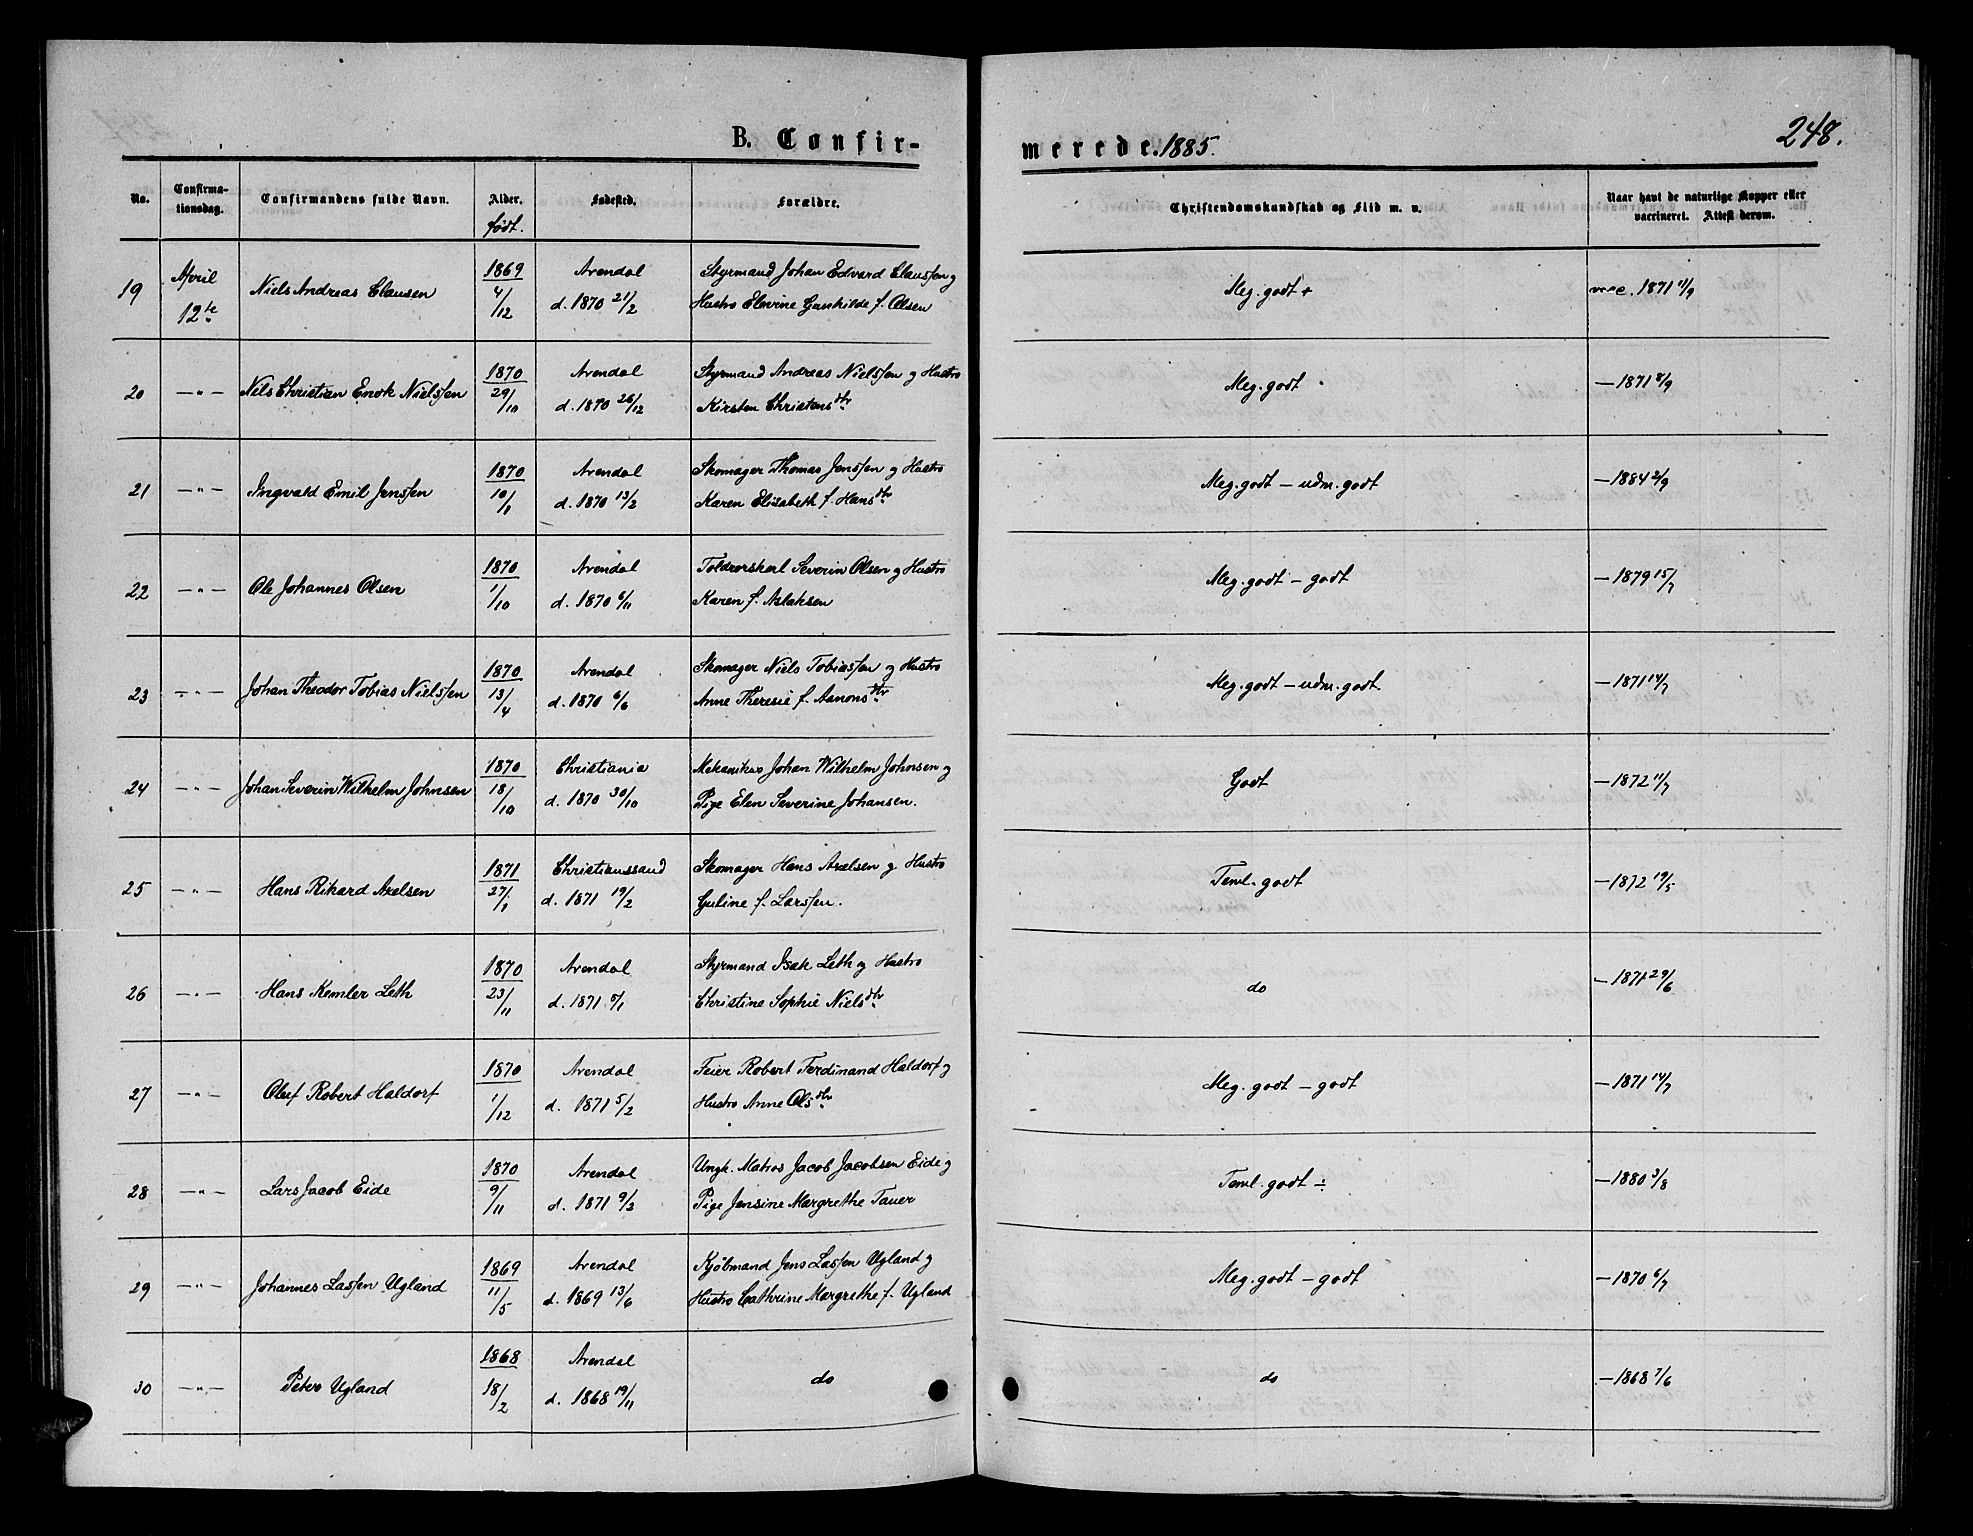 B. Confir-
merede. 1885.
248.
No.
Confirma-
tionsdag.
Confirmandens fulde Navn.
Alder.
født.
Fødested.
Forældre.
Christendomskundskab og Flid m. v.
Naar havt de naturlige Kopper eller
vaccineret. Attest derom.
19 April 12te Niels Andreas Clausen 1869 4/12 Arendal d. 1870 21/2 Styrmand Johan Edvard Claussen og
Hustro Elevine Gunhilde f. Olsen Meg. godt + vacc. 1871 11/9
20 —„— Nils Christian Enok Nielssen 1870 29/10 Arendal d. 1870 26/12 Styrmand Andreas Nielssen og Hustro
Kirsten Christensdtr Meg. godt — 1871 8/9
21 —„— Ingvald Emil Jenssen 1870 10/1 Arendal d. 1870 13/2 Skomager Thomas Jenssen og Hustro
Karen Elisabeth f. Hansdtr Meg. godt — udm. godt — 1884 2/9
22 —„— Ole Johannes Olsen 1870 1/10 Arendal d. 1870 6/11 Severin Olsen og Hustro
Karen f. Aslaksen Meg. godt — godt — 1879 15/7
23 —„— Johan Theodor Tobias Nielssen 1870 13/4 Arendal d. 1870 6/6 Skomager Niels Tobiassen og Hustro
Anne Theresie f. Aanonsdtr Meg. godt — udm. godt — 1871 14/7
24 —„— Johan Severin Wilhelm Johnsen 1870 18/10 Christiania d. 1870 30/10 Mekanikus Johan Wilhelm Johnsen og
Pige Elen Severine Johansen. Godt — 1872 11/7
25 —„— Hans Rikard Axelsen 1871 27/1 Christianssand d. 1871 19/2 Skomager Hans Axelsen og Hustro
Guline f. Larssen. Teml. godt — 1872 19/5
26 —„— Hans Kemler Leth 1870 23/11 Arendal d. 1871 /1 Styrmand Isak Leth og Hustro
Christine Sophie Nielsdtr do — 1871 29/6
27 —„— Oluf Robert Haldorf 1870 1/12 Arendal d. 1871 5/2 Feier Robert Ferdinand Haldorf og
Hustro Anne Olsdtr Meg. godt — godt — 1871 14/7
28 —„— Lars Jacob Eide 1870 9/11 Arendal d. 1871 9/2 Ungk. Matros Jacob Jacobsen Eide og
Pige Jensine Margrethe Tauer Teml. godt ÷ — 1880 3/8
29 —„— Johannes Lassen Ugland 1869 11/5 Arendal d. 1869 13/6 Kjøbmand Jens Lassen Ugland og
Hustro Cathrine Margrethe f. Ugland Meg. godt — godt — 1870 6/7
30 —„— Peter Ugland 1868 18/2 Arendal d. 1868 19/11 do do — 1868 7/6